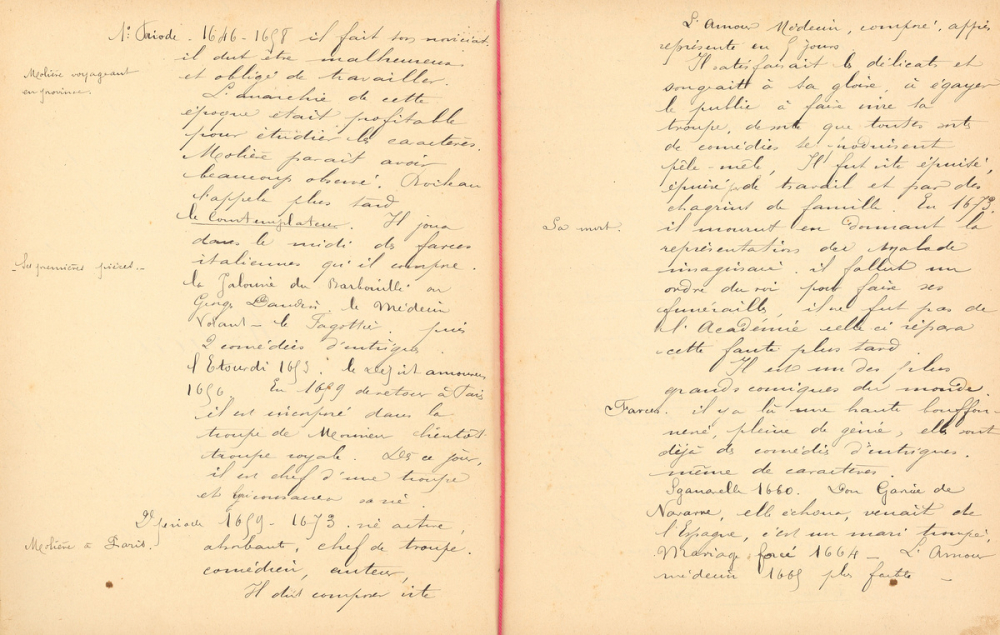 1e Période. 1646-1658 il fait son noviciat.
il dut être malheureux
Molière voyageant
en province.
et obligé de travailler.
L'anarchie de cette
époque était profitable
pour étudier les caractères.
Molière parait avoir
beaucoup observé. Boileau
l'appela plus tard
le Contemplateur. Il joua
dans le midi des farces
Ses premières pièces.
italiennes qu'il compose.
la Jalousie du Barbouillé ou
George Dandin, le Médecin
Volant - le Fagottier. puis
2 comédies d'intrigue
l'Etourdi 1653 : le Dépit amoureux
1656 En 1659 de retour à Paris
il est incorporé dans la
troupe de Monsieur bientôt
troupe royale. Dès ce jour,
il est chef d'une troupe
et
2e période 1659 - 1673. vie active,
Molière à Paris.
absorbant, chef de troupe.
comédien, auteur,
Il dut composer vite
L'Amour Médecin, composé, appris
représenté en 5 jours
Il satisfaisait les délicats et
songeait à sa gloire, à égayer
le public à faire vivre sa
troupe, de sorte que toutes sortes
de comédies se produisent
pêle-mêle, Il fut vite épuisé,
épuisé de travail et par des
chagrins de famille. En 1673
Sa mort.
il mourut en donnant la
représentation du Malade
imaginaire. il fallut un
ordre du roi pour faire ses
funérailles, il ne fut pas de
l'Académie celle ci répara
cette faute plus tard
Il est un des plus
grands comiques du monde.
Farces. il y a là une haute bouffon-
nerie, pleine de génie, elles sont
déjà des comédies d'intrigues.
même de caractères
Sganarelle 1660. Don Garcie de
Navarre, elle échoua, venait de
l'Espagne, c'est un mari trompé,
Mariage forcé 1664 - L'Amour
médecin 1665 plus faible -